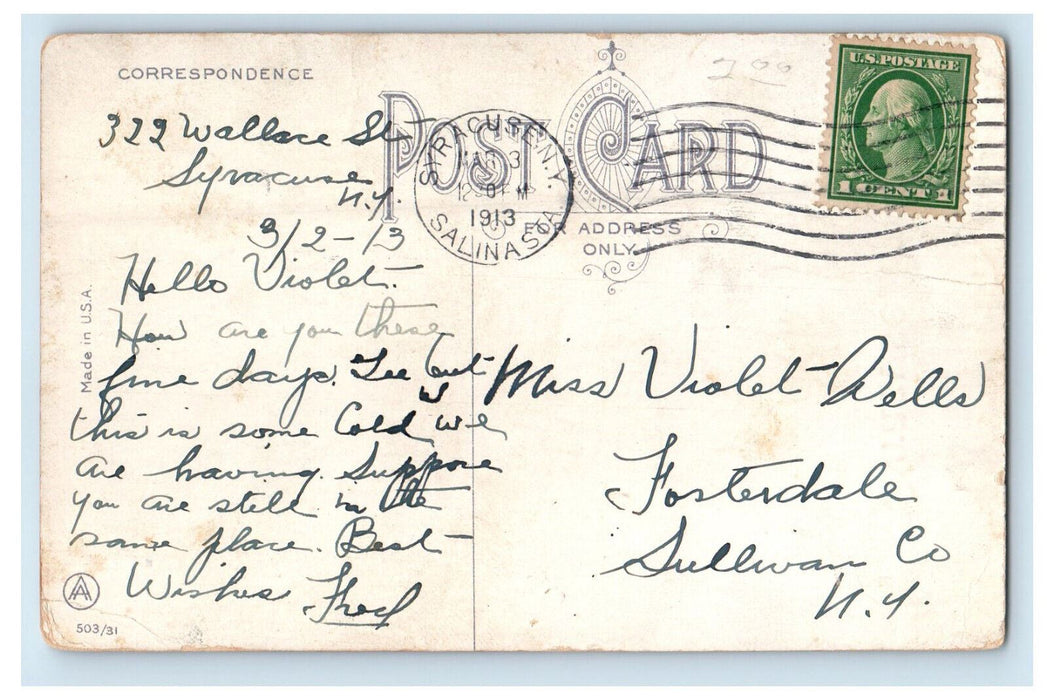 CORRESPONDENCE
POST CARD
FOR ADDRESS
ONLY
2 00
U.S. POSTAGE
1 CENT 1
SYRACUSE, N.Y.
MAR 3
12-
M
1913
SALINA STA.
322 Wallace St
Syracuse
N.Y.
3/2-13
Hello Violet.
How are you these
fine days. Gee but
this is some Cold we
are having. Suppose
you are still in the
same place. Best
Wishes Fred
Miss Violet Wells
Fosterdale
Sullivan Co
N.Y.
Made in U.S.A.
AA
503/31